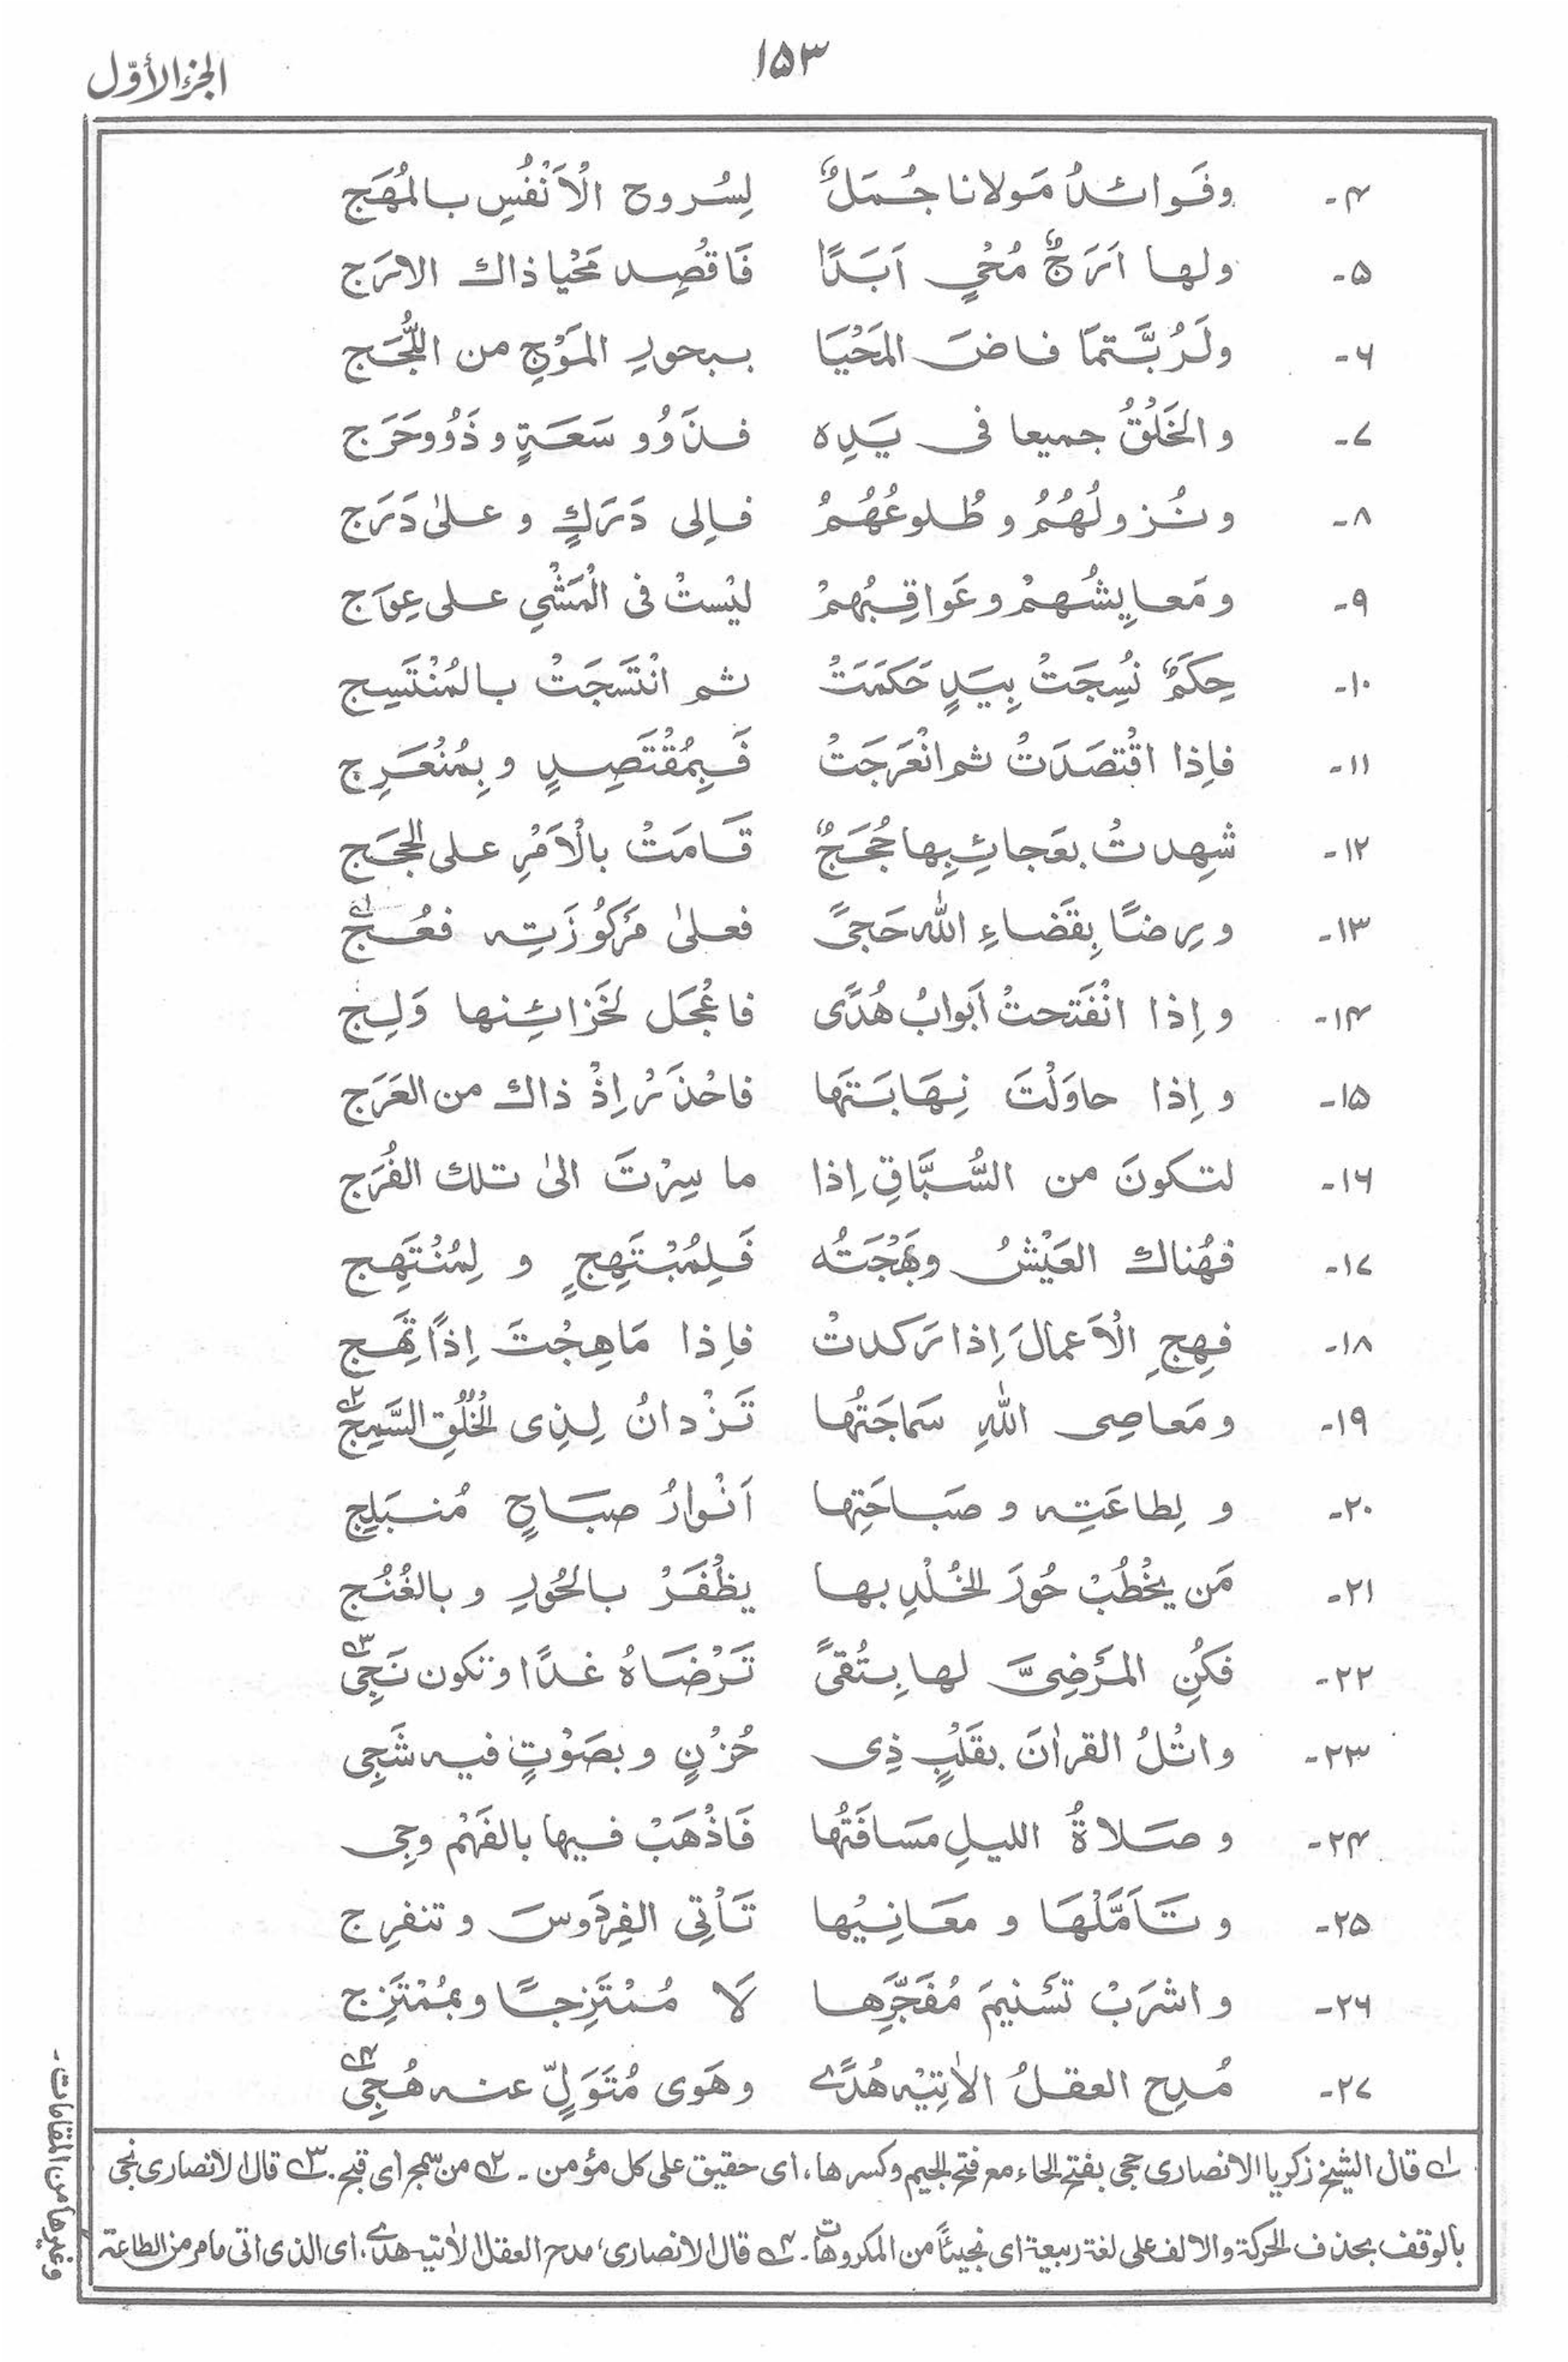 ١٥٣
الجزء الأوّل
٤- وفَوائدُ مَولانا جُمَلٌ لِسُروح الْاَنْفُسِ بالمُهَج
٥- ولها اَرَجٌ مُحْيٍ اَبَدًا فَاقْصِد مَحْيا ذاك الارَج
٦- ولَرُبَّتمَا فاضَ المَحْيَا ببحورِ المَوْجِ من اللُّجَج
٧- والخَلْقُ جميعا فى يَدِه فذَوُو سَعَةٍ وذَوُو حَرَج
٨- ونُزولُهُمُ وطُلوعُهُمُ فاِلى دَرَكٍ وعلىٰ دَرَج
٩- ومَعايِشُهمْ وعَواقِبُهمْ ليْستْ فى الْمَشْيِ على عِوَاج
١٠- حِكَمٌ نُسِجَتْ بِيَدٍ حَكَمَتْ ثم انْتَسَجَتْ بالمُنْتَسِج
١١- فاِذا اقْتصَدَتْ ثم انْعَرَجَتْ فَبِمُقْتَصِدٍ وبِمُنْعَرِج
١٢- شهِدتْ بعَجائِبِها حُجَجٌ قَامَتْ بالْاَمْرِ على الحِجَج
١٣- ورِضًا بِقَضاءِ الله حَجىً فعلىٰ مَرْكُوْزَتِه فعُج ١؎
١٤- واِذا انْفَتحتْ اَبوابُ هُدًى فاعْجَل لخَزائِنها وَلِج
١٥- واِذا حاوَلْتَ نِهَايَتَها فاحْذَرْ اِذْ ذاك من العَرَج
١٦- لتكونَ من السُّبَّاقِ اِذا ما سِرْتَ الىٰ تلك الفُرَج
١٧- فهُناك العَيْشُ وبَهْجَتُه فَلِمُبْتَهِجٍ ولِمُنْتَهِج
١٨- فهِجِ الْاَعمالَ اِذا رَكدتْ فاِذا مَا هِجْتَ اِذًا تَهِج
١٩- ومَعاصِى اللهِ سَماجَتُها تَزْدانُ لِذِى الْخُلُقِ السَّمِج ٢؎
٢٠- ولِطاعَتِه وصَباحَتِها اَنْوارُ صبَاحٍ مُنبَلِج
٢١- مَن يخْطُبْ حُورَ الخُلْدِ بها يظْفَرْ بالحُورِ وبالغُنُج
٢٢- فَكُنِ المَرْضِىَّ لها بِتُقىً تَرْضَاهُ غدًا وتكون نَجِى ٣؎
٢٣- واتْلُ القراٰنَ بقَلْبٍ ذِى حُزْنٍ وبصَوْتٍ فيه شَجِى
٢٤- وصَلاةُ الليلِ مسَافَتُها فَاذْهَبْ فيها بالفَهْم وجِى
٢٥- وتَاَمَّلْهَا ومَعَانِيْها تَأْتِى الفِرْدَوسَ وتنفرِج
٢٦- واشرَبْ تَسْنيمَ مُفَجَّرِها لَا مُمْتَزِجًا وبمُمْتَزِج
٢٧- مُدِح العقلُ الاٰتِيْه هُدًى وهَوى مُتَوَلٍّ عنه هُجِى ٤؎
١؎ قال الشيخ زكريا الانصارى حجى بفتح الحاء مع فتح الجيم وكسرها، اى حقيق على كل مؤمن۔ ٢؎ من سمج اى قبح۔ ٣؎ قال الانصارى نجى
بالوقف بحذف الحركة والالف على لغة ربيعة اى نجيئًا من المكروهات۔ ٤؎ قال الانصارى، مدح العقل الاٰتيه هدى، اى الذى اتى مامر من الطاعة
وغيرها من المقامات۔